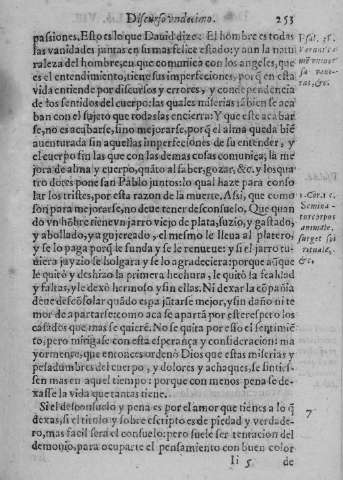 Discurso vndecimo. 253
passiones, Esto es lo que Dauid dize: El hombre es todas
las vanidades juntas en su mas felice estado: y aun la natu
raleza del hombre, en que comunica con los angeles, que
es el entendimiento, tiene sus imperfeciones, porq̃ en esta
vida entiende por discursos y errores, y con dependencia
de los sentidos del cuerpo: las quales miserias tãbien se aca
ban con el sujeto que todas las encierra: Y que este acabar
se, no es acabarse, sino mejorarse, porq̃ el alma queda biẽ
auenturada sin aquellas imperfeciones de su entender, y
el cuerpo sin las que con las demas cosas comunica, la me
jora de alma y cuerpo, quãto al saber, gozar, &c. y los qua
tro dotes pone san Pablo juntos: lo qual haze para conso
lar los tristes, por esta razon de la muerte. Assi, que como
son para mejorarse, no deue tener desconsuelo. Que quan
do vn hõbre tiene vn jarro viejo de plata, suzio, y gastado,
y abollado, y agujereado, el mesmo le lleua al platero,
y se lo paga porq̃ le funda y se le renueue: y si el jarro tu-
uiera juyzio se holgara y se lo agradeciera: porque aũque
le quitò y deshizo la primera hechura, le quitò la fealdad
y faltas, y le dexò hermoso y sin ellas. Ni dexar la cõpañia
deue desconsolar quãdo es pa jũtarse mejor, y sin daño ni te
mor de apartarse: como acà se aparta por este respeto los
casados que mas se quierẽ. No se quita por esto el sentimiẽ
to, pero mitigase con esta esperança y consideracion: ma
yormente, que entonces ordenò Dios que estas miserias y
pesadumbres del cuerpo, y dolores y achaques, se sinties-
sen mas en aquel tiempo: porque con menos pena se de-
xasse la vida que tantas tiene.
Si el desconsuelo y pena es por el amor que tienes a lo q̃
dexas, si el titulo y sobre escripto es de piedad y verdade-
ro, mas facil serà el consuelo: pero suele ser tentacion del
demonio, para ocuparte el pensamiento con buen color
Ii 5 de
Psal. 38.
1. Cor. 15.
Semina-
tur corpus
animale,
surget spi
rituale,
&c.
7